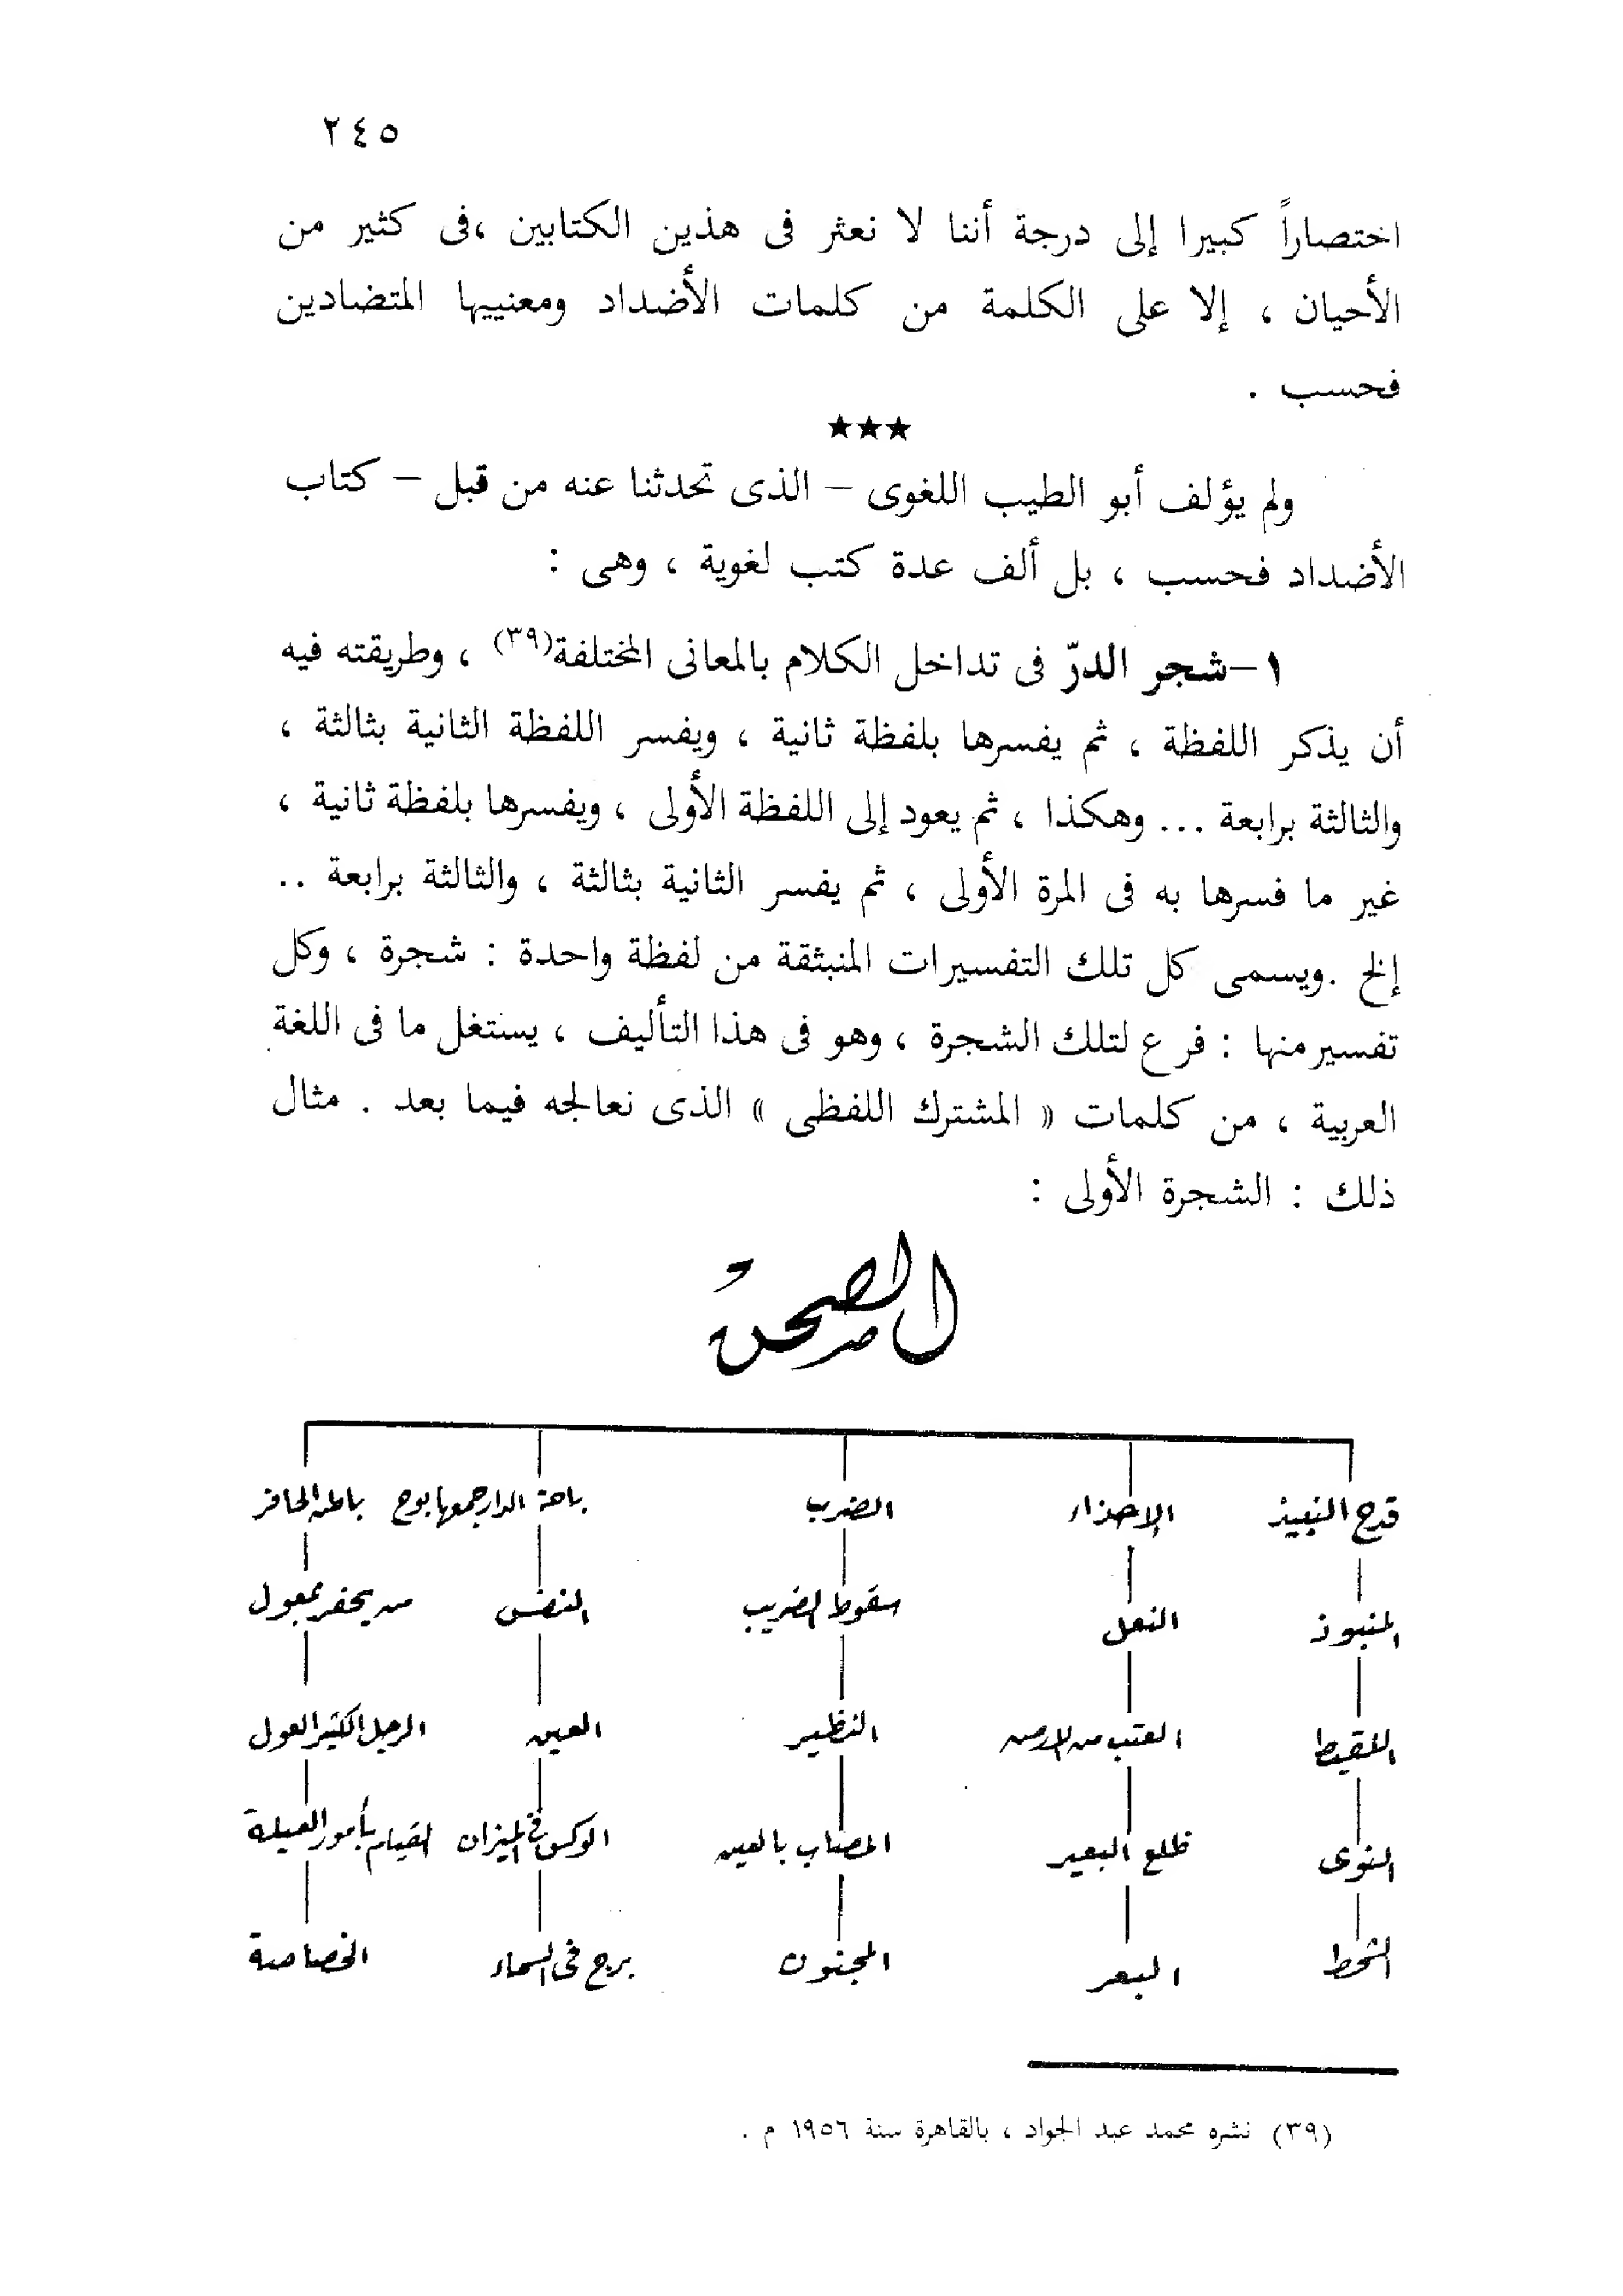 ٢٤٥
اختصاراً كبيرا إلى درجة أننا لا نعثر فى هذين الكتابين ،فى كثير من
الأحيان ، إلا على الكلمة من كلمات الأضداد ومعنييها المتضادين
فحسب .
★★★
ولم يؤلف أبو الطيب اللغوى – الذى تحدثنا عنه من قبل – كتاب
الأضداد فحسب ، بل ألف عدة كتب لغوية ، وهى :
١–شجر الدرّ فى تداخل الكلام بالمعانى المختلفة(٣٩) ، وطريقته فيه
أن يذكر اللفظة ، ثم يفسرها بلفظة ثانية ، ويفسر اللفظة الثانية بثالثة ،
والثالثة برابعة ... وهكذا ، ثم يعود إلى اللفظة الأولى ، ويفسرها بلفظة ثانية ،
غير ما فسرها به فى المرة الأولى ، ثم يفسر الثانية بثالثة ، والثالثة برابعة ..
إلخ .ويسمى كل تلك التفسيرات المنبثقة من لفظة واحدة : شجرة ، وكل
تفسير منها : فرع لتلك الشجرة ، وهو فى هذا التأليف ، يستغل ما فى اللغة
العربية ، من كلمات « المشترك اللفظى » الذى نعالجه فيما بعد . مثال
ذلك : الشجرة الأولى :
الصحنُ
قدح النبيذ الاحذاء الضرب باحة الدار جمعها بوح باطن الحافر
المنبوذ النعل سقوط الضريب النفس من يحفر بمعول
اللقيط العتب من الارض النظير العين الرجل الكثير العول
النوى ظلع البعير المصاب بالعين الوكس فى الميزان القيام بأمور العيلة
الشحط البعر المجنون برج فى السماء الخصاصة
(٣٩) نشره محمد عبد الجواد ، بالقاهرة سنة ١٩٥٦ م .